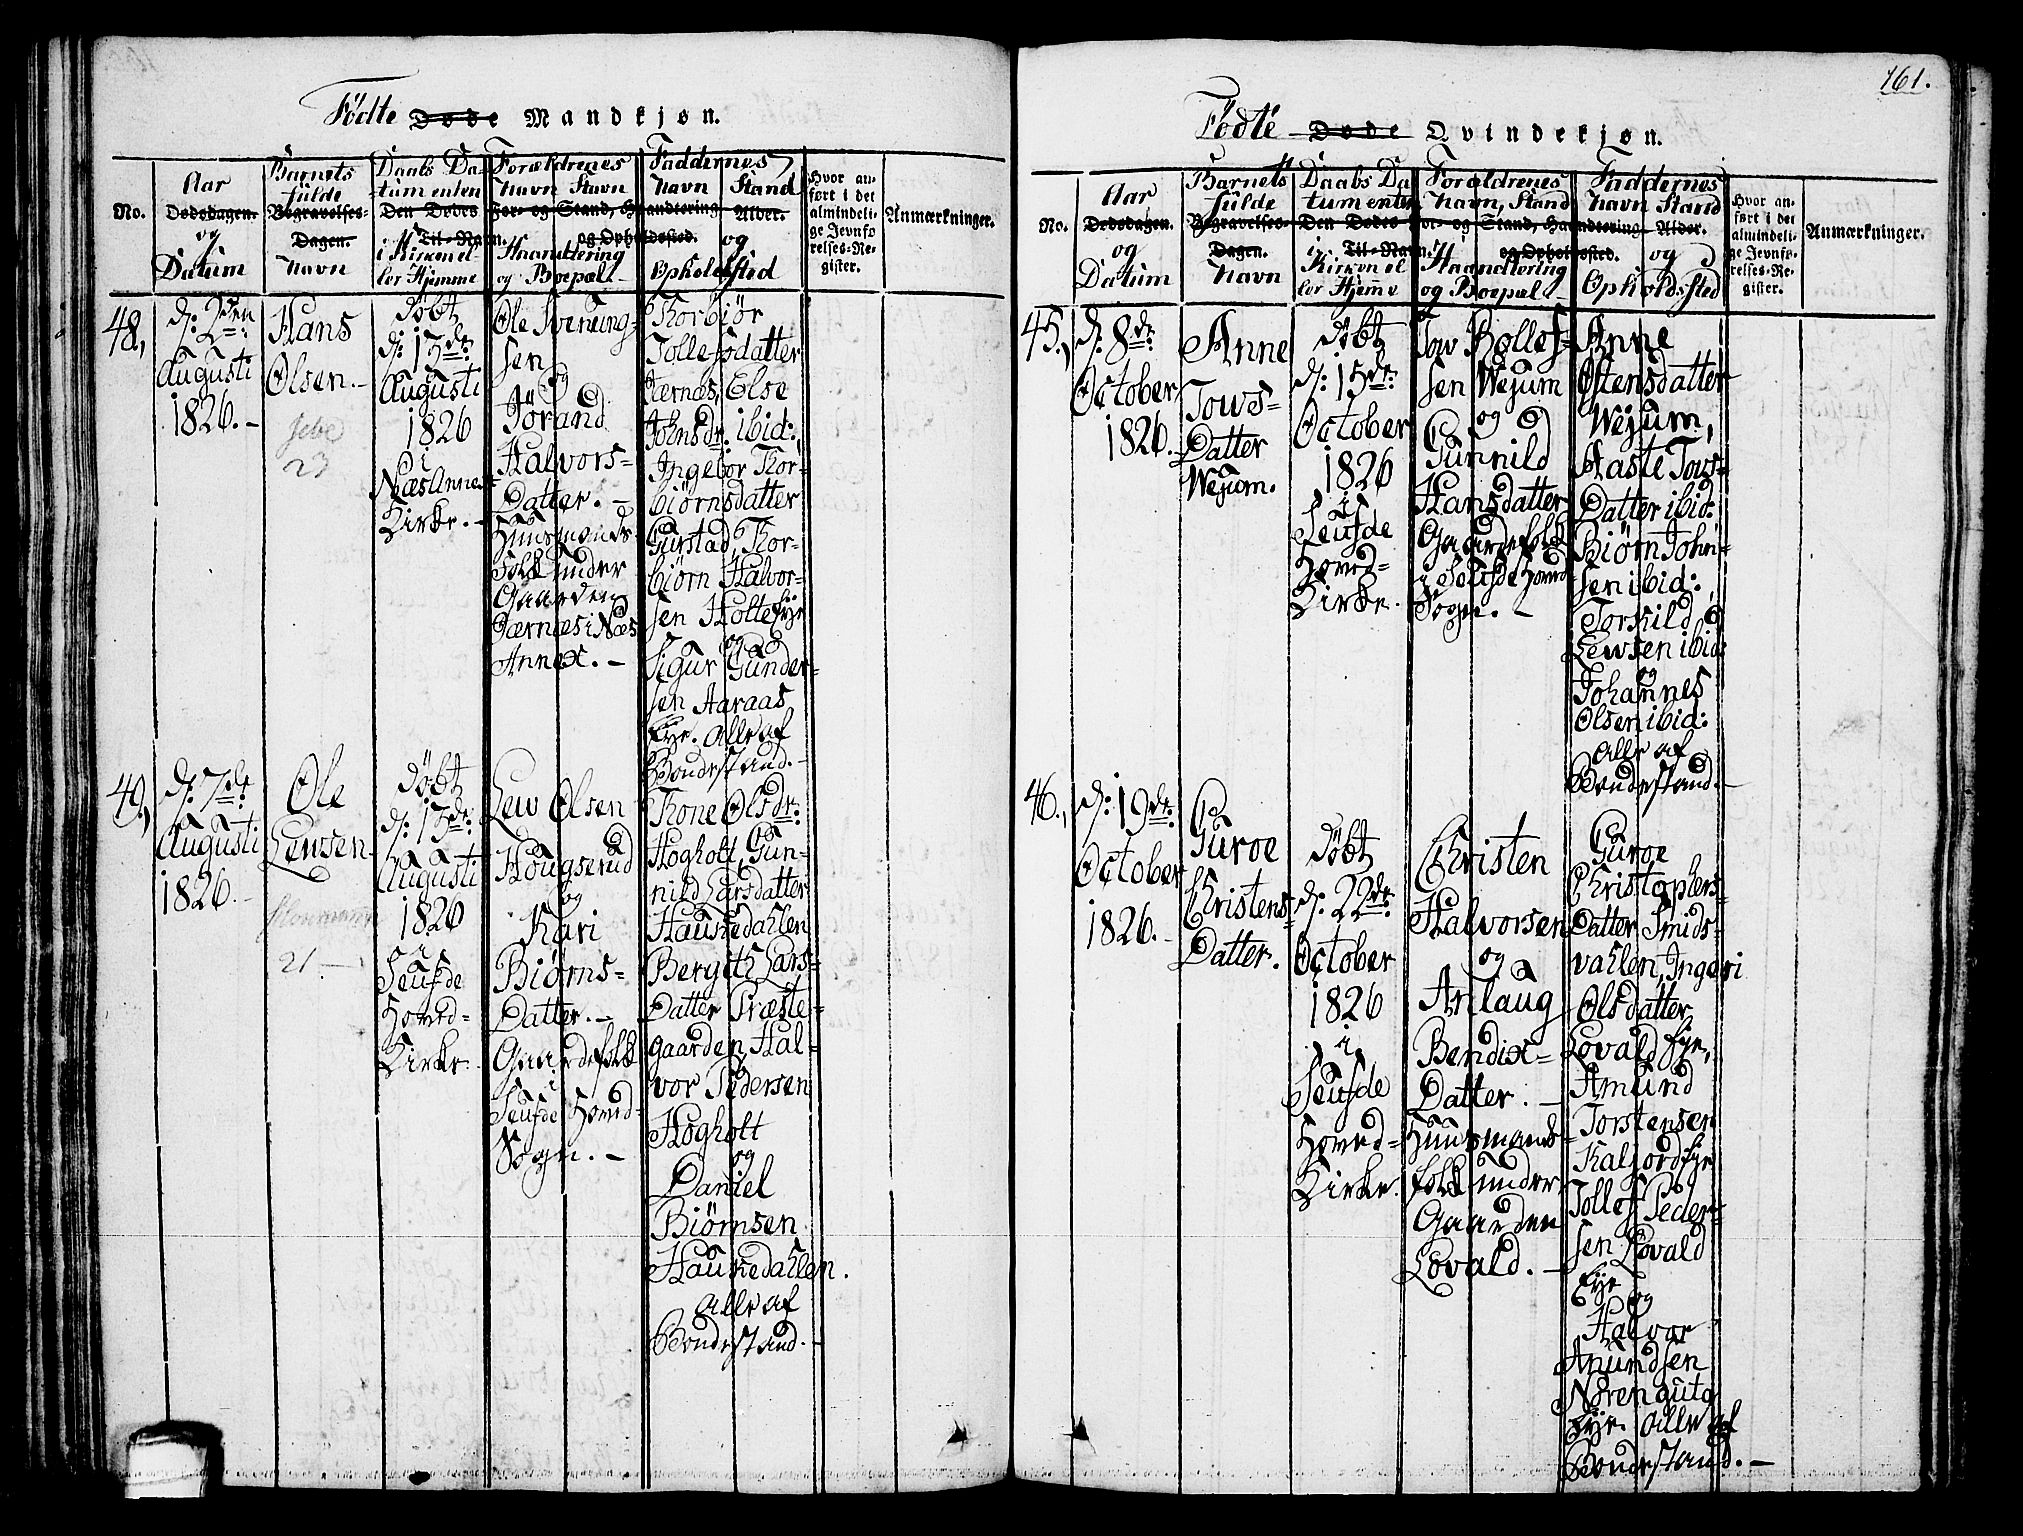 Födte Døde Mandkjøn.
No.
Aar
Dødsdagen.
og
Datum
Barnets
fulde
Begravelses-
Dagen.
Navn
Daabs Da-
tum enten
Den Dødes
Til-Navn.
i Kirken el-
ler Hjemme
Forældrenes
Navn Stavn
For- og Stand, Haandtering
og Opholdssted.
Haandtering
og Boepæl
Faddernes
Navn Stand
Alder.
og
Opholdssted
Hvor an-
ført i det
almindeli-
ge Jevnfø-
relses-Re-
gister.
Anmærkninger.
48,
d: 2den
Augusti
1826.-
Hans
Olsen.-
23
Döbt
d: 13de
Augusti
1826
i
Næs Annex-
Kirke.-
Ole Svenung-
sen
og
Jörand
Halvors-
Datter.-
Huusmands
Folk under
Gaarden
Jærnæs i Næs
Annex.-
Thorbjör
Tollefsdatter
Jærnæs, Else
Johnsdr. ibid:,
Ingebor Thor-
biörnsdatter
Gurstad, Thor-
biörn Halvor-
sen Holte Eje
og
Sigur Gunder-
sen Aaraas
Eje. Alle af
Bondestand.-
49,
d: 7de
Augusti
1826.-
Ole
Lewsen
21-
Döbt
d: 13de
Augusti
1826
i
Seufde
Hoved-
Kirke.
Lew Olsen
Hougserud
og
Kari
Biörns-
Datter.-
Gaardefolk
i
Seufde Hoved-
Sogn.-
Thone Olsdr:
Hogholt, Gun-
nild Larsdatter
Haukedahlen
Bergith Lars-
Datter Præste-
gaarden, Hal-
vor Pedersen
Hogholt
og
Daniel
Biörnsen
Haukedahlen.
Alle af
Bondestand.-
161.
Födte Døde Qvindekjøn.
No.
Aar
Dødsdagen.
og
Datum
Barnets
fulde
Begravelses-
Dagen.
Navn
Daabs Da
tum enten
Den Dødes
Til-Navn.
i Kirken el
ler Hjemme
Forældrenes
Navn, Stand
For- og Stand, Haandtering
og Opholdssted.
Haandtering
og Boepæl
Faddernes
Navn Stand
Alder.
og
Opholds Sted
Hvor an-
ført i det
almindeli-
ge Jevnfø-
relses-Re-
gister.
Anmærkninger.
45,
d: 8de
October
1826.
Anne
Tows-
Datter
Wejum.
Döbt
d: 15de
October
1826
i
Seufde
Hoved-
Kirke.
Tow Rollef-
sen Wejum
og
Gunnild
Hansdatter
Gaardefolk
i Seufde Hoved-
Sogn.-
Anne
Östensdatter
Wejum,
Aaste Tows-
Datter ibid:
Biörn John-
sen ibid:,
Torkild
Lewsen ibid:
og
Johannes
Olsen ibid:
Alle af
Bondestand.-
46.,
d: 19de
October
1826.-
Guroe
Christens-
Datter.
Döbt
d: 22de
October
1826
i
Seufde
Hoved-
Kirke.
Christen
Halvorsen
og
Anlaug
Bendix-
Datter.-
Huusmands-
folk under
Gaarden
Lovald.-
Guroe
Christophers-
Datter Smids-
vahlen, Ingeri
Olsdatter
Lovald Eje,
Amund
Torstensen
Kaljord Eje
Tollef Peder-
sen Lovald
Eje
og
Halvor
Anundsen
Norengutu
Eje. Alle af
Bondestand.-